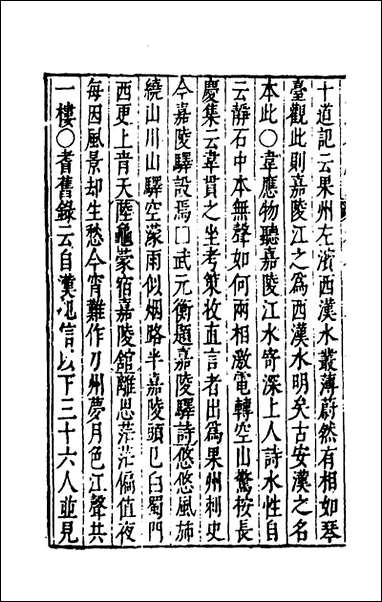 十道記云果州左濱西漢水叢薄蔚然有相如琴
臺觀此則嘉陵江之為西漢水明矣古安漢之名
本此○韋應物聽嘉陵江水寄深上人詩水性自
云靜石中本無聲如何兩相激雷轉空山驚按長
慶集云韋貫之坐考策收直言者出為果州刺史
今嘉陵驛設焉□武元衡題嘉陵驛詩悠悠風斾
繞山川山驛空濛雨似烟路半嘉陵頭已白蜀門
西更上青天陸龜蒙宿嘉陵館離思茫茫偏值夜
每因風景却生愁今宵難作刀州夢月色江聲共
一樓○耆舊錄云自漢紀信以下三十六人並見